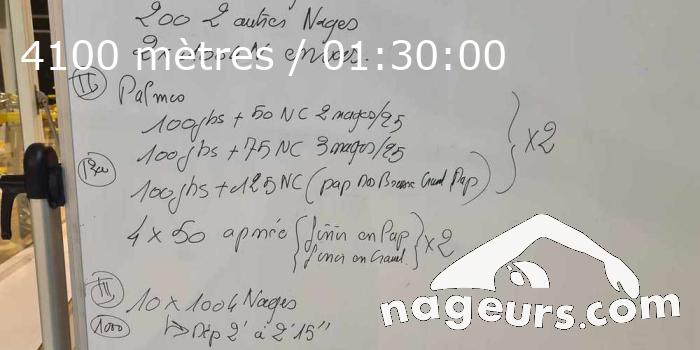 200 2 autres Nages
4100 mètres / 01:30:00
II
Palmes
100 jbs + 50 NC 2 nages/25
100 jbs + 75 NC 3 nages/25
100 jbs + 125 NC (pap Dos Brasse Crawl Pap)
x2
4 x 50 apnée
finir en Pap
finir en Crawl
x2
III
10 x 100 4 Nages
1000
Dép 2' à 2'15"
nageurs.com